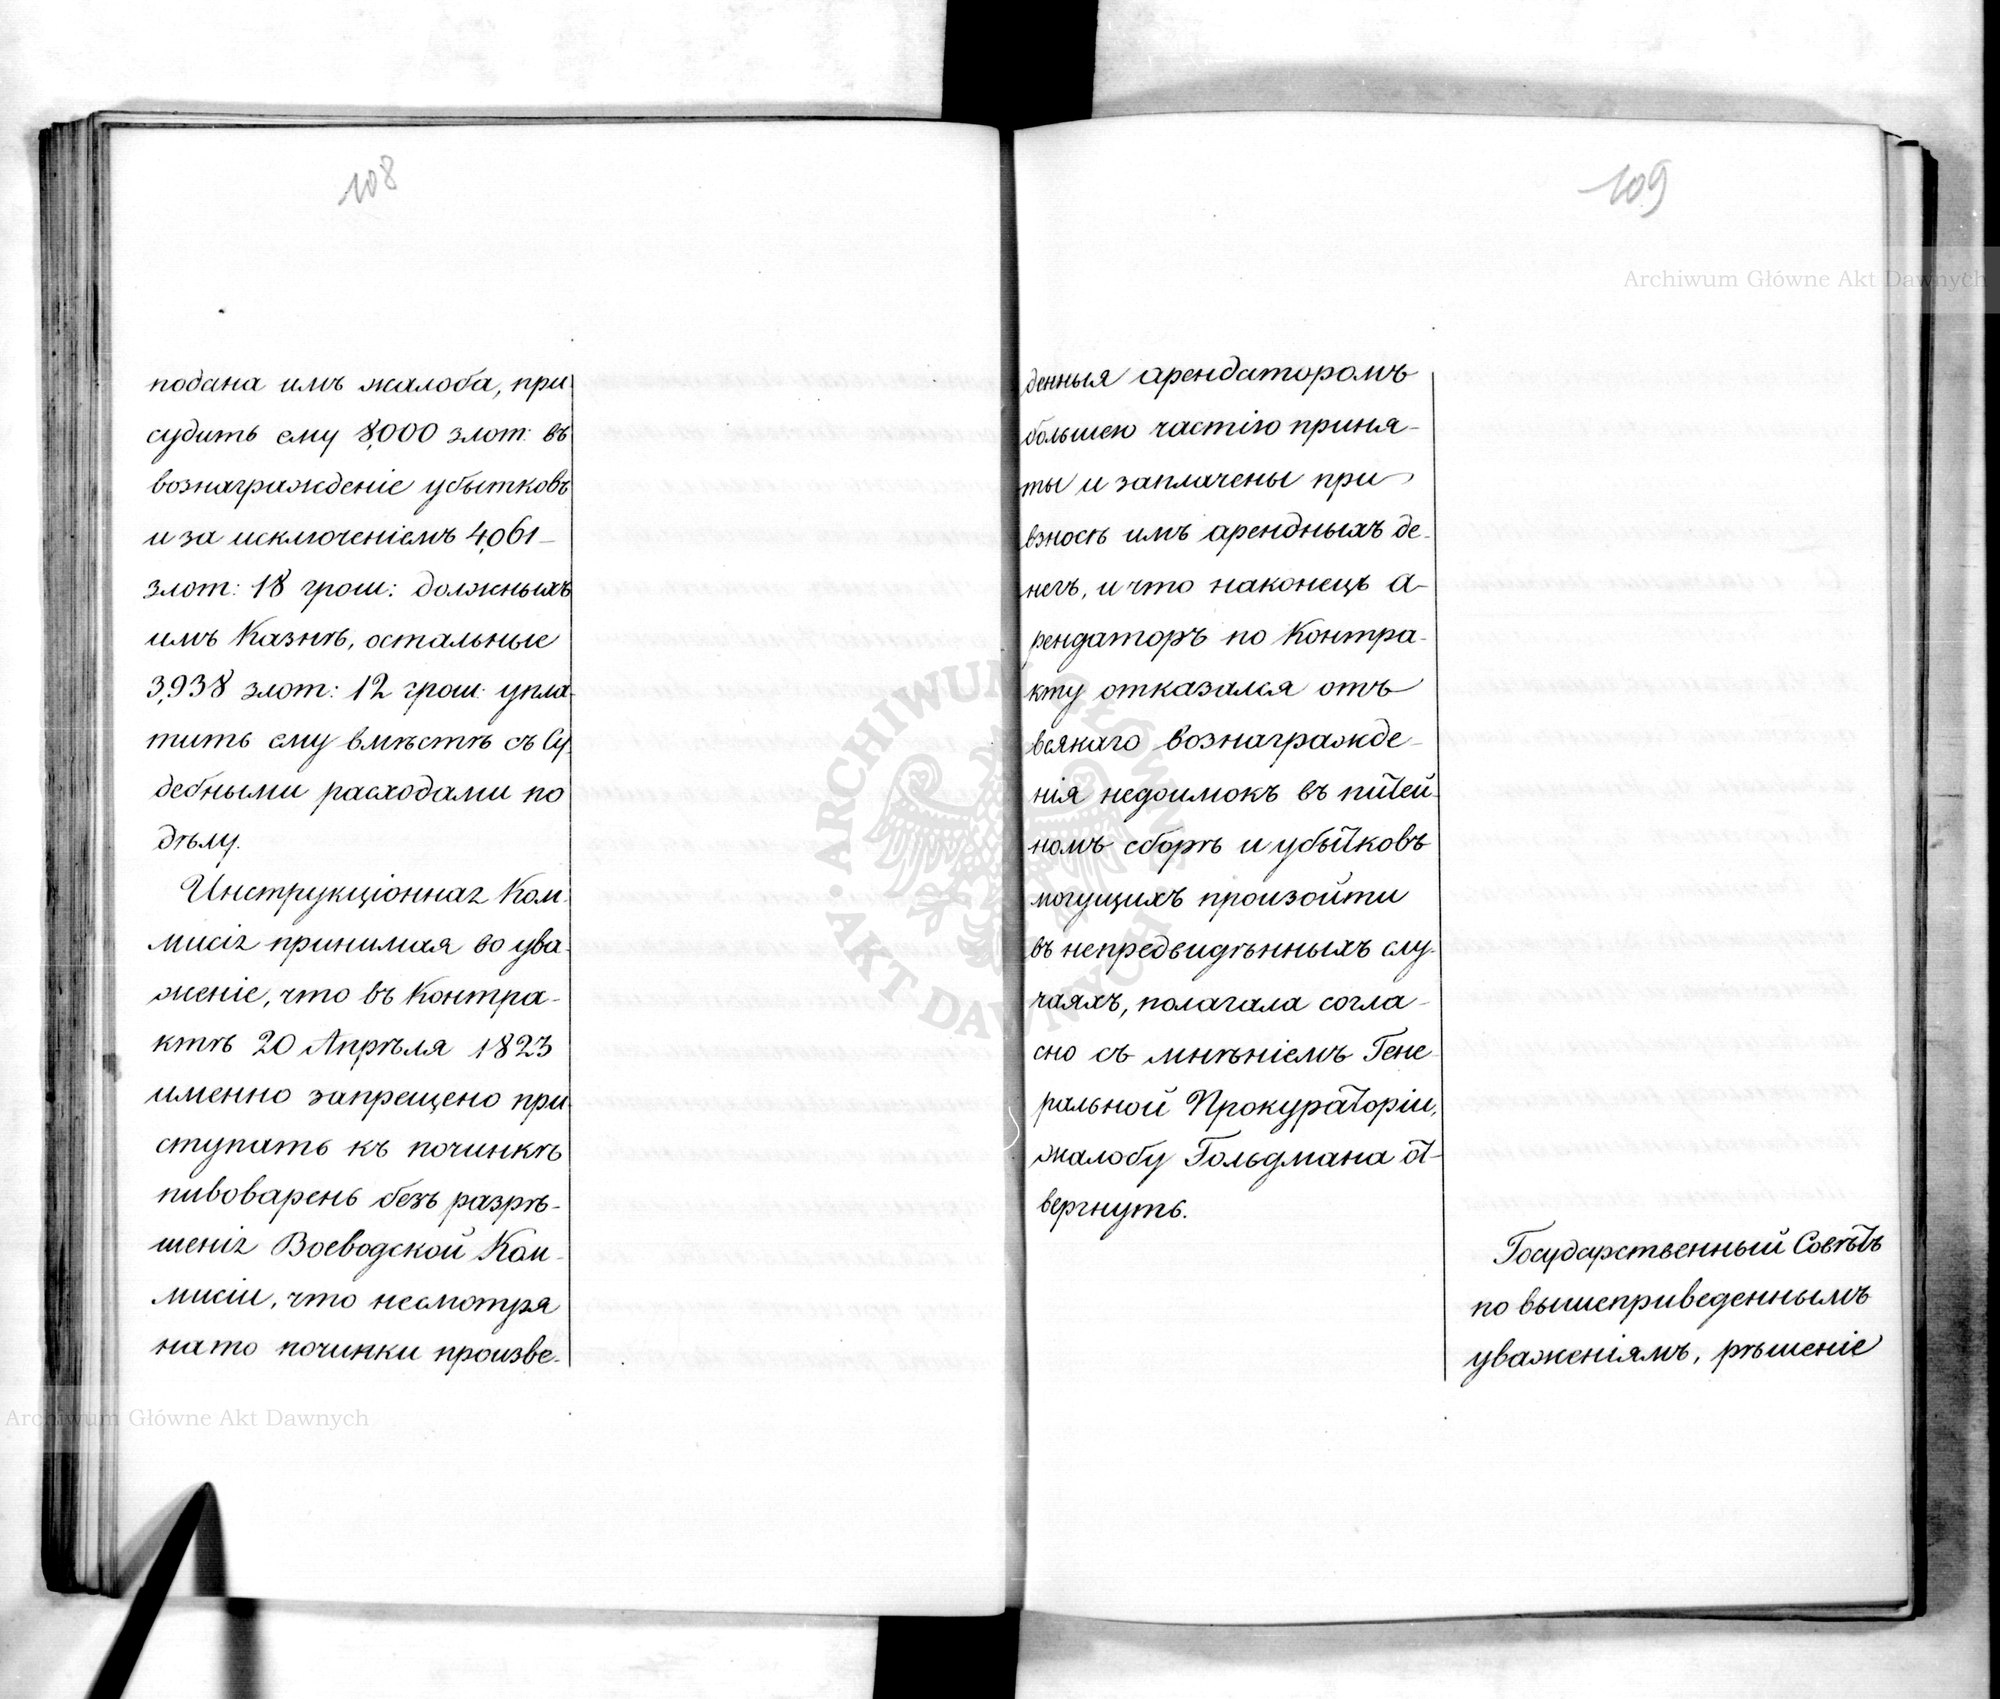 108
подана имъ жалоба, при
судить ему 8,000 злот: въ
вознагражденіе убытковъ
и за исключеніемъ 4,061
злот: 18 грош: должныхъ
имъ Казнѣ, остальные
3,938 злот: 12 грош: упла-
тить ему вмѣстѣ съ Су-
дебными расходами по
дѣлу.
Инструкціонная Ком-
мисія принимая во ува-
женіе, что въ Контра-
ктѣ 20 Апрѣля 1823
именно запрещено при-
ступать къ починкѣ
пивоварень безъ разрѣ-
шенія Воеводской Ком-
мисіи, что несмотря
на то починки произве-
109
денныя арендаторомъ
большею частію приня-
ты и заплачены при
взносѣ имъ арендныхъ де-
негъ, и что наконецъ а-
рендаторъ по Контра-
кту отказался отъ
всякаго вознагражде-
нія недоимокъ въ питей-
номъ сборѣ и убытковъ
могущихъ произойти
въ непредвидѣнныхъ слу-
чаяхъ, полагала согла-
сно съ мнѣніемъ Гене-
ральной Прокураторіи,
жалобу Гольдмана от-
вергнуть.
Государственный Совѣтъ
по вышеприведеннымъ
уваженіямъ, рѣшеніе
Archiwum Główne Akt Dawnych
ARCHIWUM GŁÓWNE AKT DAWNYCH
Archiwum Główne Akt Dawnych